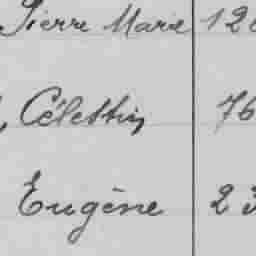 Pierre Marie 12
, Célestin 76
Eugène 23